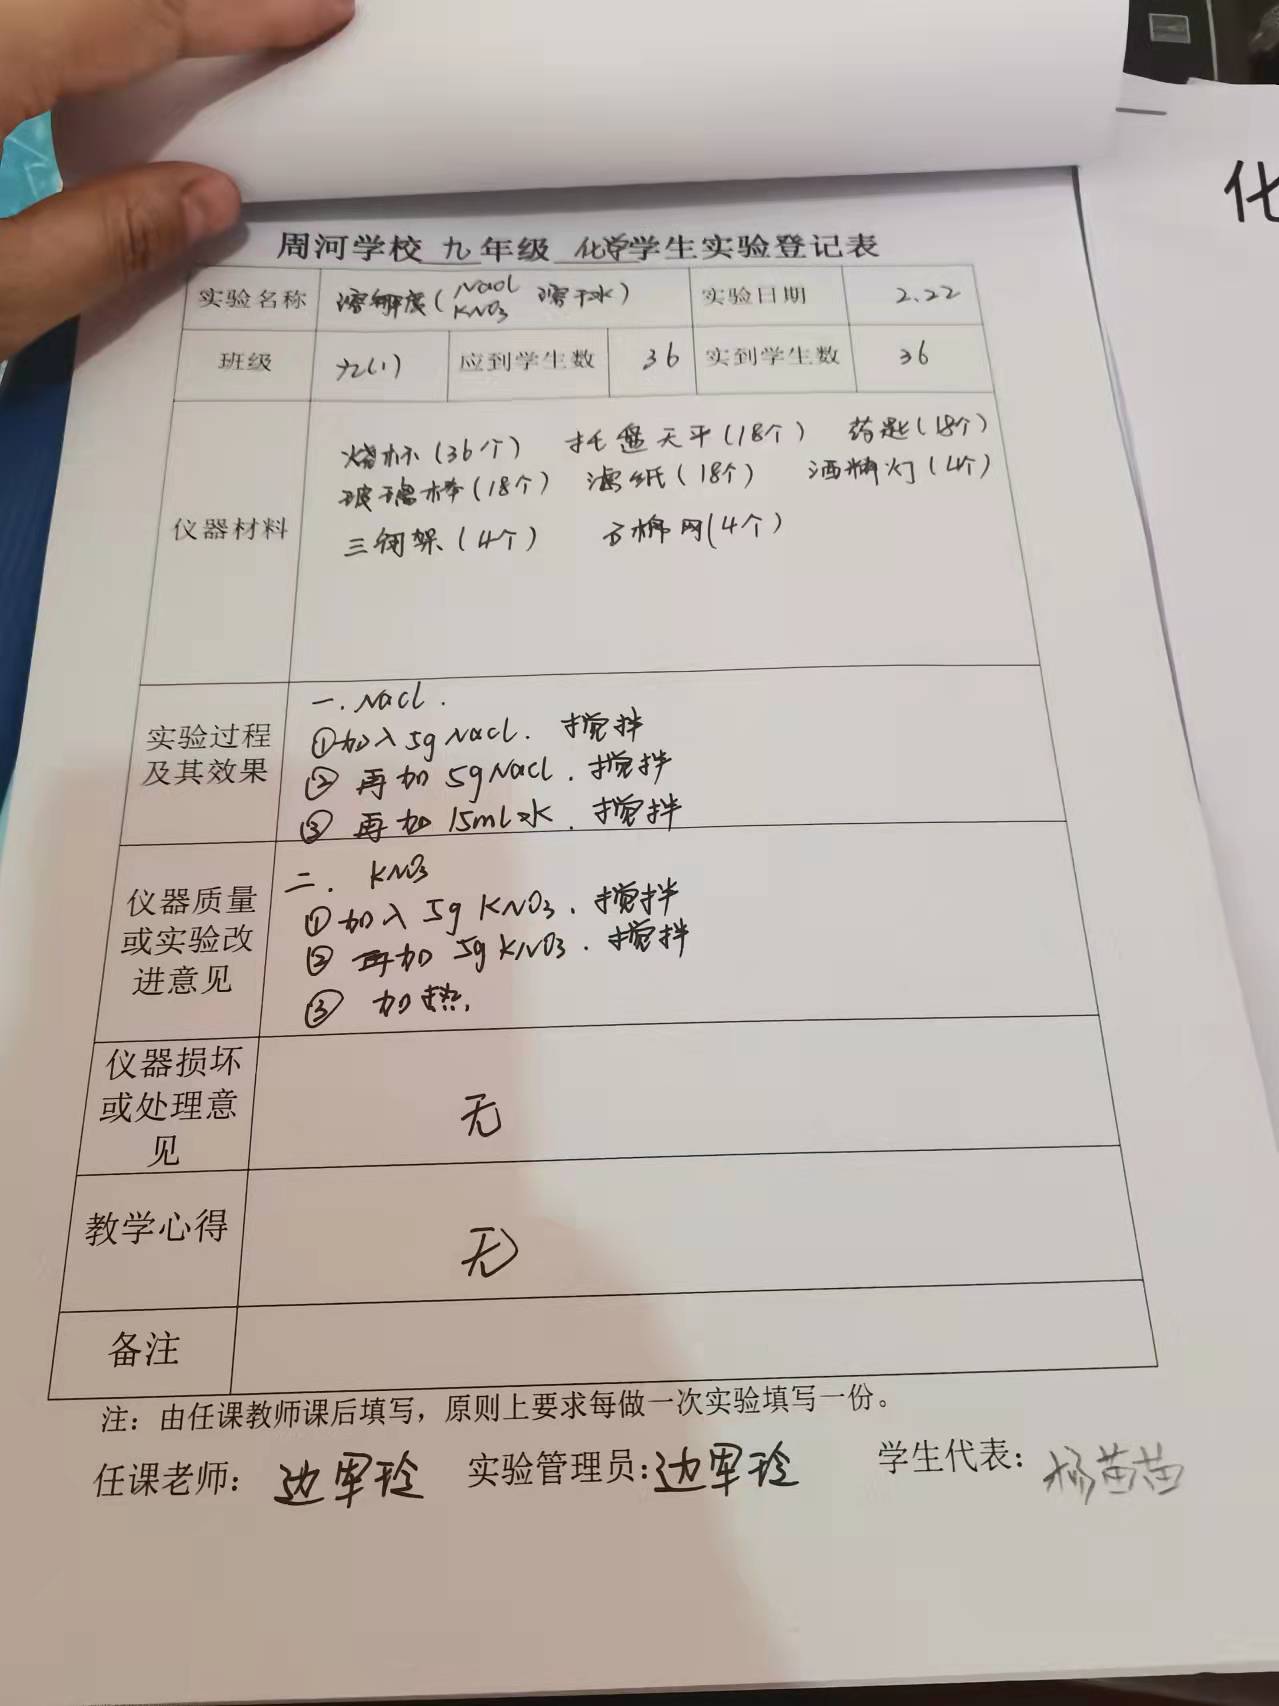 化
周河学校 九 年级 化学学生实验登记表
实验名称 溶解度(NaCl KNO3 溶于水) 实验日期 2.22
班级 九(1) 应到学生数 36 实到学生数 36
仪器材料
烧杯(36个) 托盘天平(18个) 药匙(18个)
玻璃棒(18个) 滤纸(18个) 酒精灯(4个)
三钢架(4个) 石棉网(4个)
实验过程及其效果
一.NaCl.
①加入5gNaCl.搅拌
②再加5gNaCl.搅拌
③再加15ml水.搅拌
仪器质量或实验改进意见
二.KNO3
①加入5gKNO3.搅拌
②再加5gKNO3.搅拌
③加热.
仪器损坏或处理意见 无
教学心得 无
备注
注:由任课教师课后填写,原则上要求每做一次实验填写一份。
任课老师:边军玲 实验管理员:边军玲 学生代表:杨苗苗